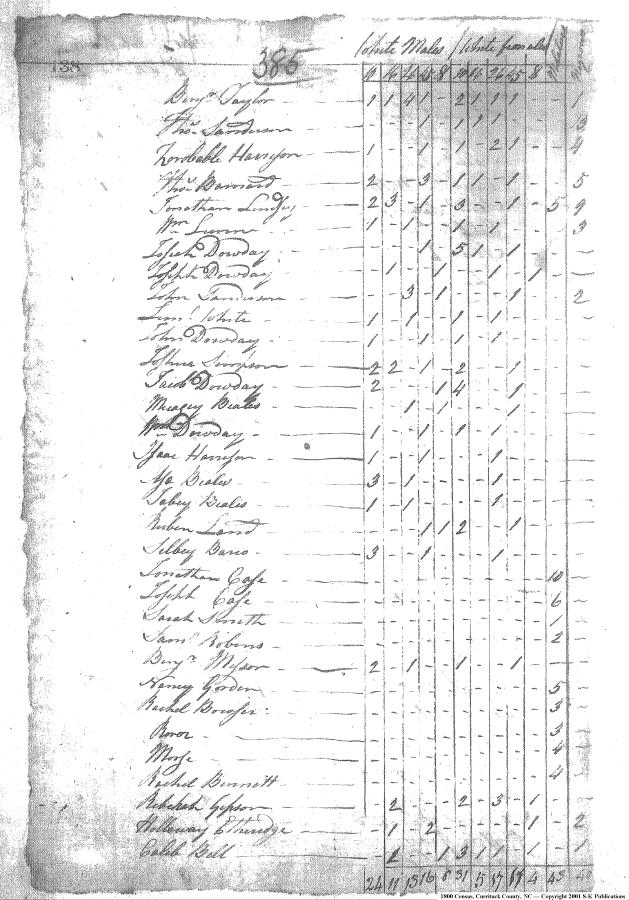 138
385
White Males / White females
10 16 26 45 8 10 16 26 45 8
Benjn. Taylor - 1 1 4 1 - 2 1 1 1 - - 1
Thos. Sanderson
Zorobable Harrison - 1 - - 1 - 1 - 2 1
Thos. Barnard - 2 - - 3 - 1 1 - 1 - - 5
Jonathan Lindsey 2 3 - 1 - 3 - - 1 - 5 9
Wm. Lunn 1 - 1 - - 1 - 1 - - - 3
Joseph Dowday - - - 1 - 5 1 - 1
Joseph Dowday - 1 - - 1 - - 1 - 1
John Sanderson - - 3 - 1 - - - 1 - - 2
Saml. White 1 - 1 - - 1 - 1
John Dowday 1 - - 1 - 1 - 1
Joshua Simpson 2 2 - 1 - 2 - - 1
Jacob Dowday 2 - - - 1 4 - - 1
Beales - - 1 - 1 - - - 1
Wm. Dowday 1 - - 1 - 1 - 1
Isaac Harrison 1 - - 1 - - - 1
Asa Beales 3 - 1 - - - - 1
Tabey Beales 1 - 1 - - - - 1
Ruben Land - - - 1 1 2 - - 1
Silbey Barco 3 - - 1 - - - 1
Jonathan Case 10
Joseph Case 6
Sarah Smith 1
Saml. Robins 2
Benjn. Mysor 2 - 1 - - 1 - - 1
Nancy Gorden 5
Rachel Bowser 3
3
Morse 4
Rachel Bennett 4
Rebekah Gipson - 2 - - - 2 - 3 - 1
Holloway Etheridge - 1 - 2 - - - - - 1 - 2
Caleb Bell - 1 - - 1 3 1 1 - 1 - 1
24 11 13 16 8 31 5 17 4 43
1800 Census, Currituck County, NC — Copyright 2001 S-K Publications